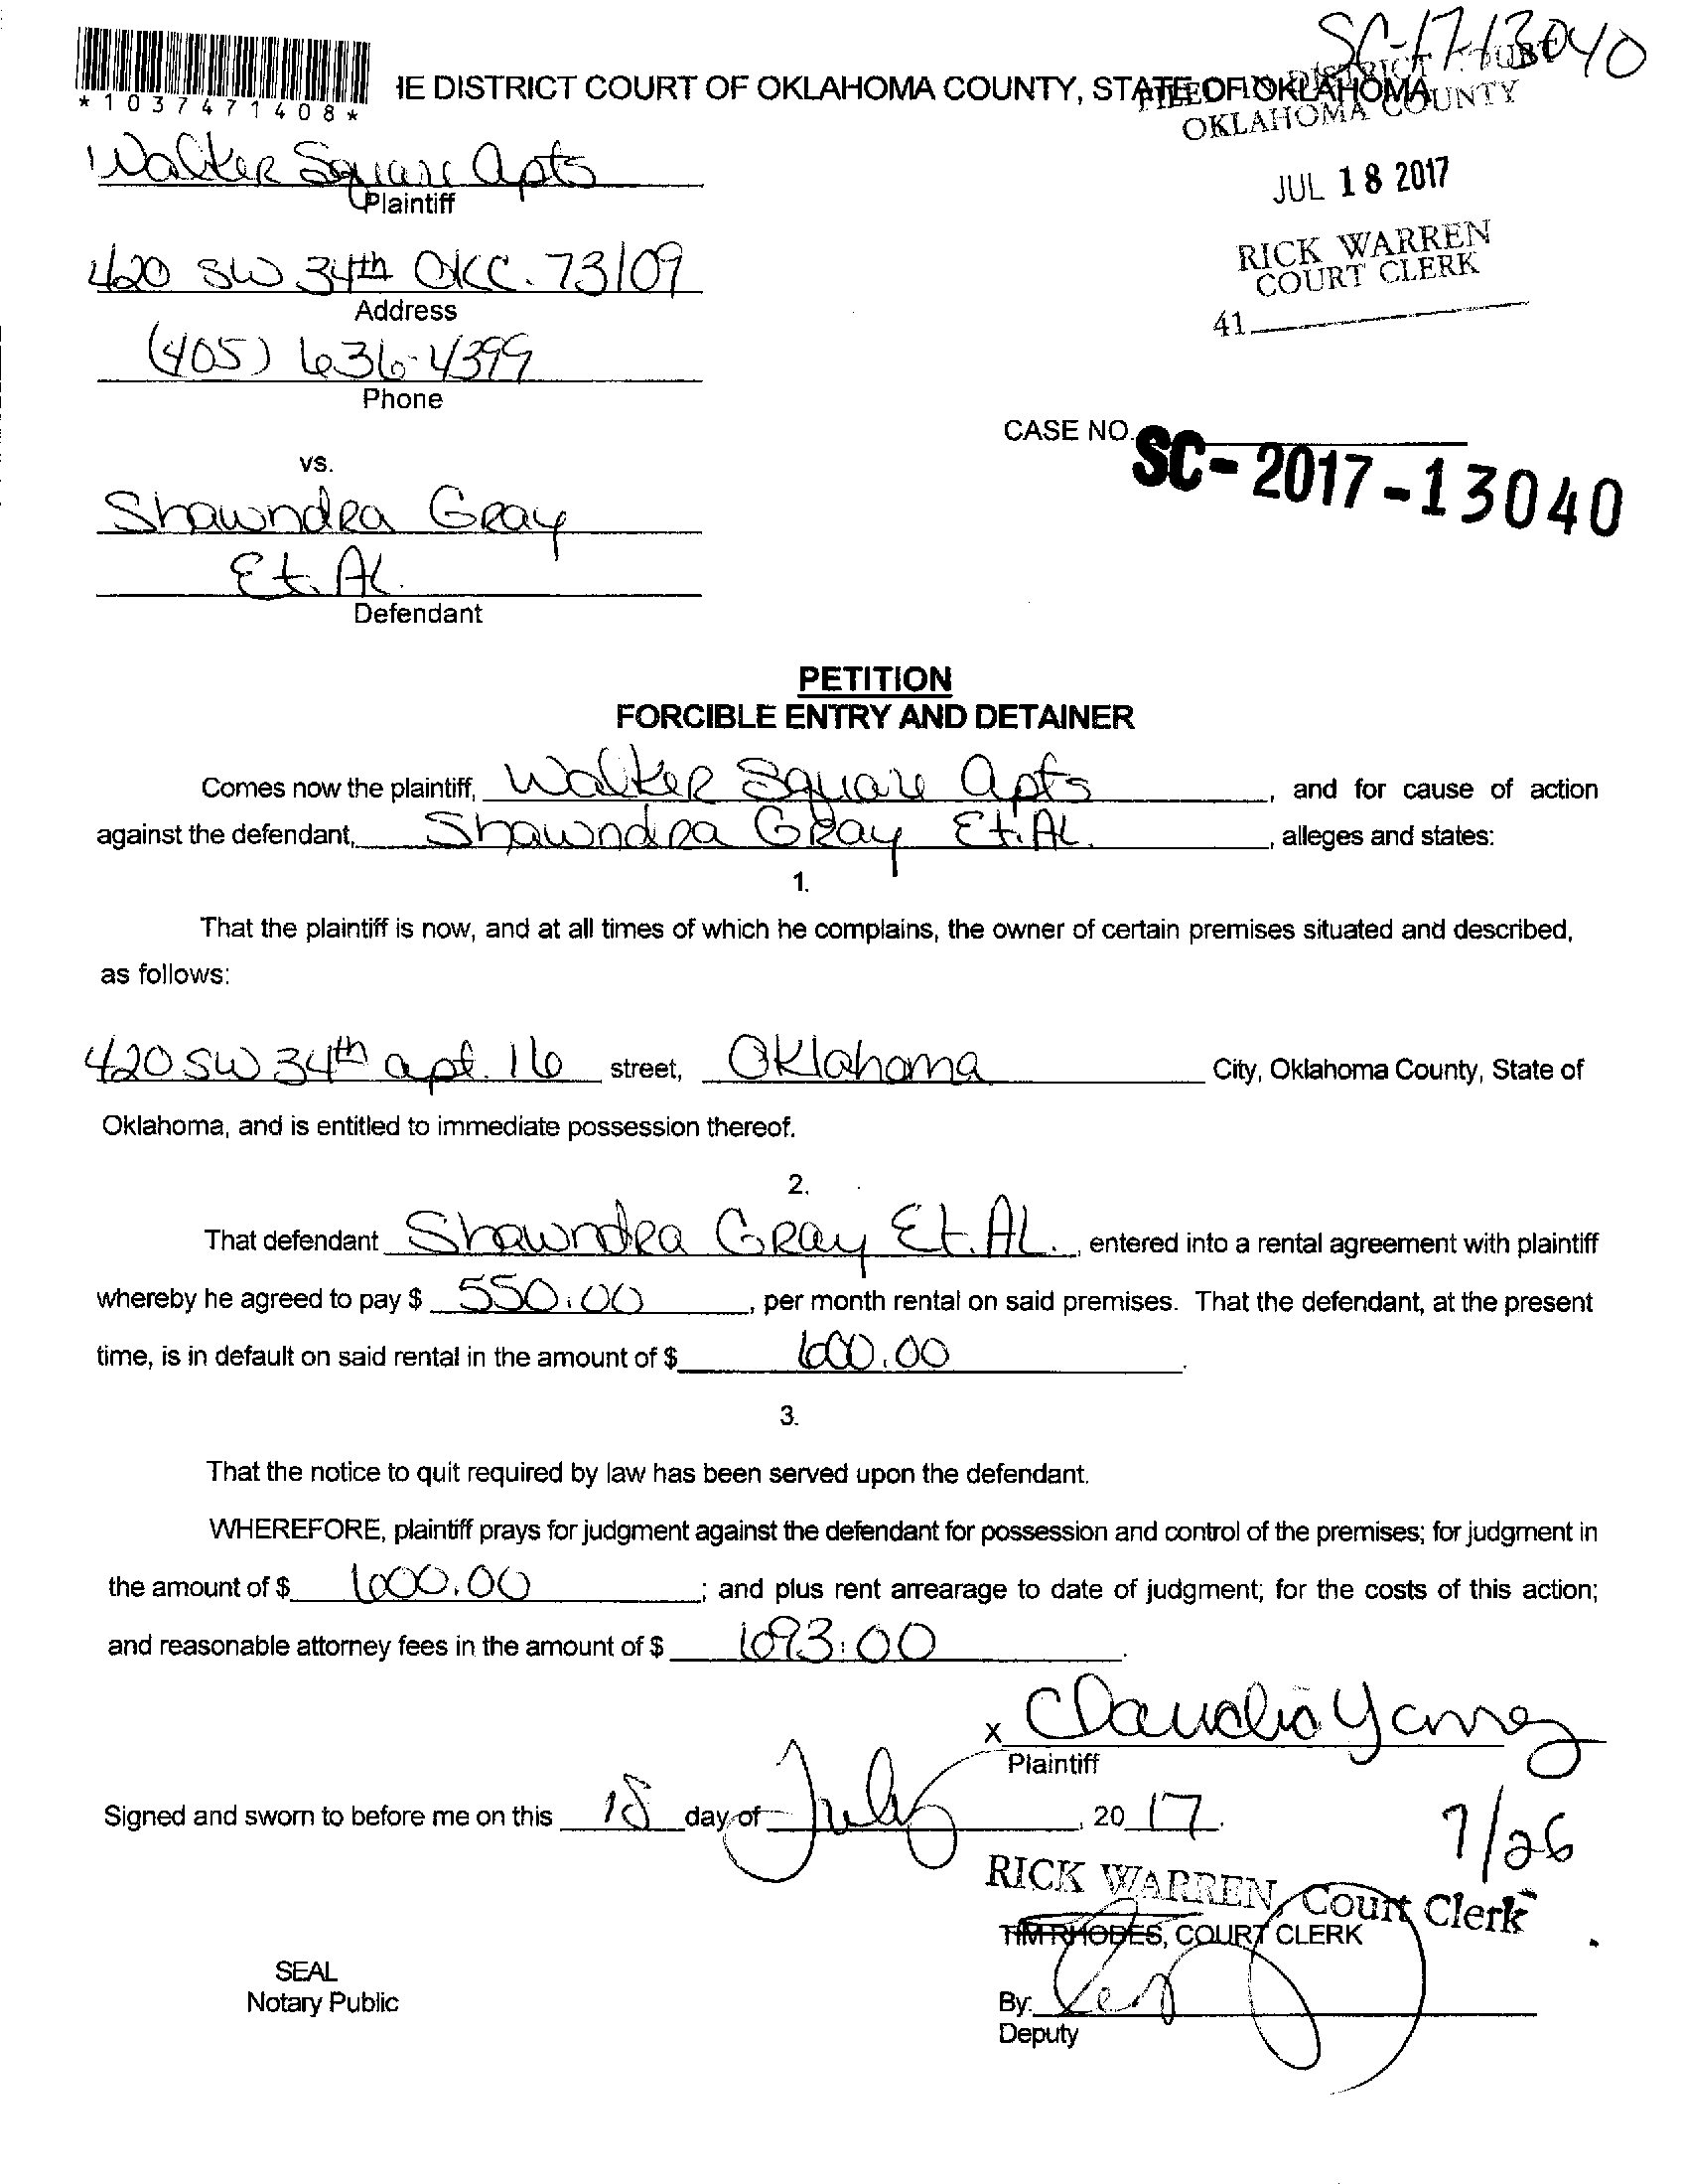 SC-17-13040
*1037471408*
IE DISTRICT COURT OF OKLAHOMA COUNTY, STATE OF OKLAHOMA
FILED IN DISTRICT COURT
OKLAHOMA COUNTY
JUL 18 2017
RICK WARREN
COURT CLERK
41
Walker Square Apts
Plaintiff
420 SW 34th OKC. 73109
Address
(405) 636-4399
Phone
CASE NO. SC-2017-13040
vs.
Shawndra Gray
Et. Al.
Defendant
PETITION
FORCIBLE ENTRY AND DETAINER
Comes now the plaintiff, Walker Square Apts, and for cause of action
against the defendant, Shawndra Gray Et. Al., alleges and states:
1.
That the plaintiff is now, and at all times of which he complains, the owner of certain premises situated and described,
as follows:
420 SW 34th apt. 16 street, Oklahoma City, Oklahoma County, State of
Oklahoma, and is entitled to immediate possession thereof.
2.
That defendant Shawndra Gray Et. Al., entered into a rental agreement with plaintiff
whereby he agreed to pay $ 550.00, per month rental on said premises. That the defendant, at the present
time, is in default on said rental in the amount of $ 600.00.
3.
That the notice to quit required by law has been served upon the defendant.
WHEREFORE, plaintiff prays for judgment against the defendant for possession and control of the premises; for judgment in
the amount of $ 600.00; and plus rent arrearage to date of judgment; for the costs of this action;
and reasonable attorney fees in the amount of $ 693.00.
x Claudia Yanez
Plaintiff
Signed and sworn to before me on this 18 day of July, 2017.
7/26
RICK WARREN, Court Clerk
TIM RHODES, COURT CLERK
SEAL
Notary Public
By:
Deputy